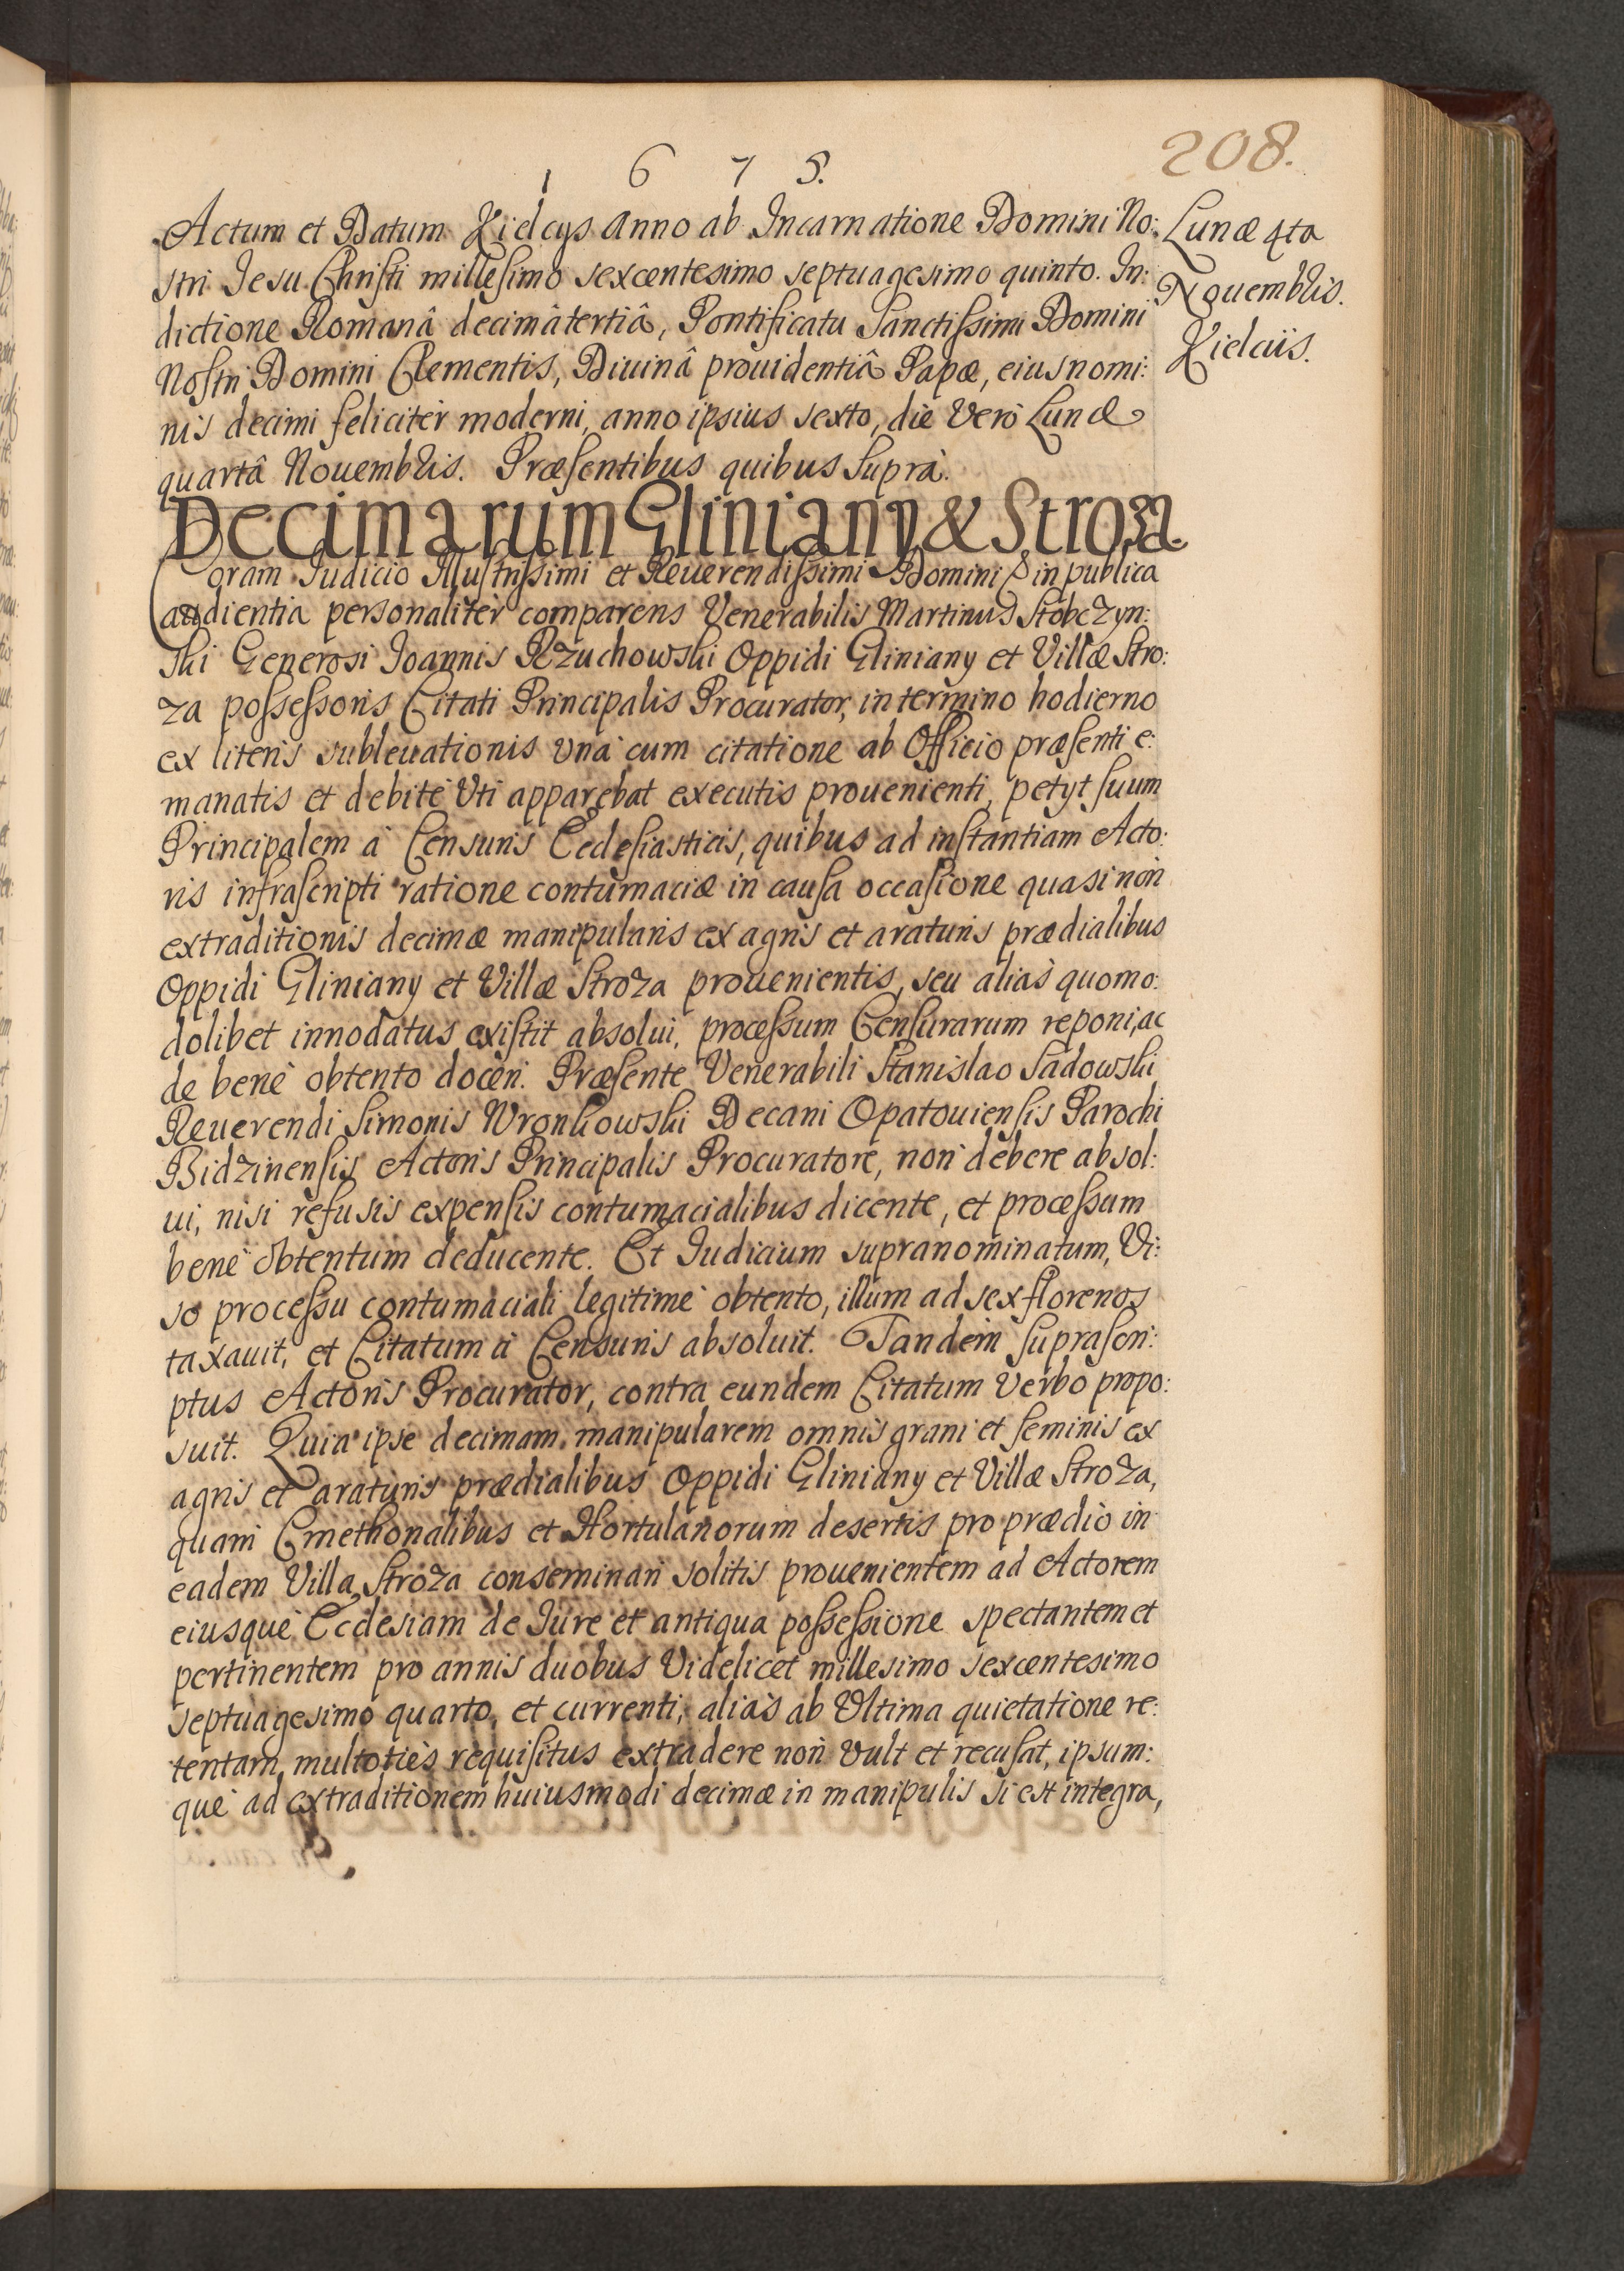 208.
1 6 7 5.
Actum et Datum Kielcys Anno ab Incarnatione Domini No:
stri Jesu Christi millesimo sexcentesimo septuagesimo quinto. In:
dictione Romanâ decimâtertiâ, Pontificatu Sanctissimi Domini
Nostri Domini Clementis, Diuinâ prouidentiâ Papæ, eius nomi:
nis decimi felicitèr moderni, anno ipsius sexto, die Verò Lunæ
quartâ Nouembris. Præsentibus quibus suprà.
Lunæ 4ta
Nouembris.
Kielciis.
Decimarum Gliniany & Stroza.
Coram Iudicio Illustrissimi et Reuerendissimi Domini in publica
audientia personalitèr comparens Venerabilis Martinus Stobczyn:
ski Generosi Joannis Rzuchowski Oppidi Gliniany et Villæ Stro:
za possessoris Citati Principalis Procurator, in termino hodierno
ex literis subleuationis unà cum citatione ab Officio præsenti e:
manatis et debitè Vti apparebat executis prouenienti, petyt suum
Principalem à Censuris Ecclesiasticis, quibus ad instantiam Acto:
ris infrascripti ratione contumaciæ in causa occasione quasi non
extraditionis decimæ manipularis ex agris et araturis prædialibus
Oppidi Gliniany et Villæ Stroza prouenientis, seu aliàs quomo:
dolibet innodatus existit absolui, processum Censurarum reponi, ac
de benè obtento doceri. Præsente Venerabili Stanislao Sadowski
Reuerendi Simonis Wronkowski Decani Opatouiensis Parochi
Bidzinensis Actoris Principalis Procuratore, non debere absol:
ui, nisi refusis expensis contumacialibus dicente, et processum
benè obtentum deducente. Et Iudicium supranominatum, Vi:
so processu contumaciali legitimè obtento, illum ad sex florenos
taxauit, et Citatum à Censuris absoluit. Tandem suprascri:
ptus Actoris Procurator, contra eundem Citatum Verbo propo:
suit. Quia ipse decimam manipularem omnis grani et seminis ex
agris et araturis prædialibus Oppidi Gliniany et Villæ Stroza,
quam Cmethonalibus et Hortulanorum desertis pro prædio in
eadem Villa Stroza conseminari solitis prouenientem ad Actorem
eiusque Ecclesiam de Iure et antiqua possessione spectantem et
pertinentem pro annis duobus Videlicet millesimo sexcentesimo
septuagesimo quarto, et currenti, aliàs ab Vltima quietatione re:
tentam, multotiès requisitus extradere non Vult et recusat, ipsum:
que ad extraditionem huiusmodi decimæ in manipulis si est integra,